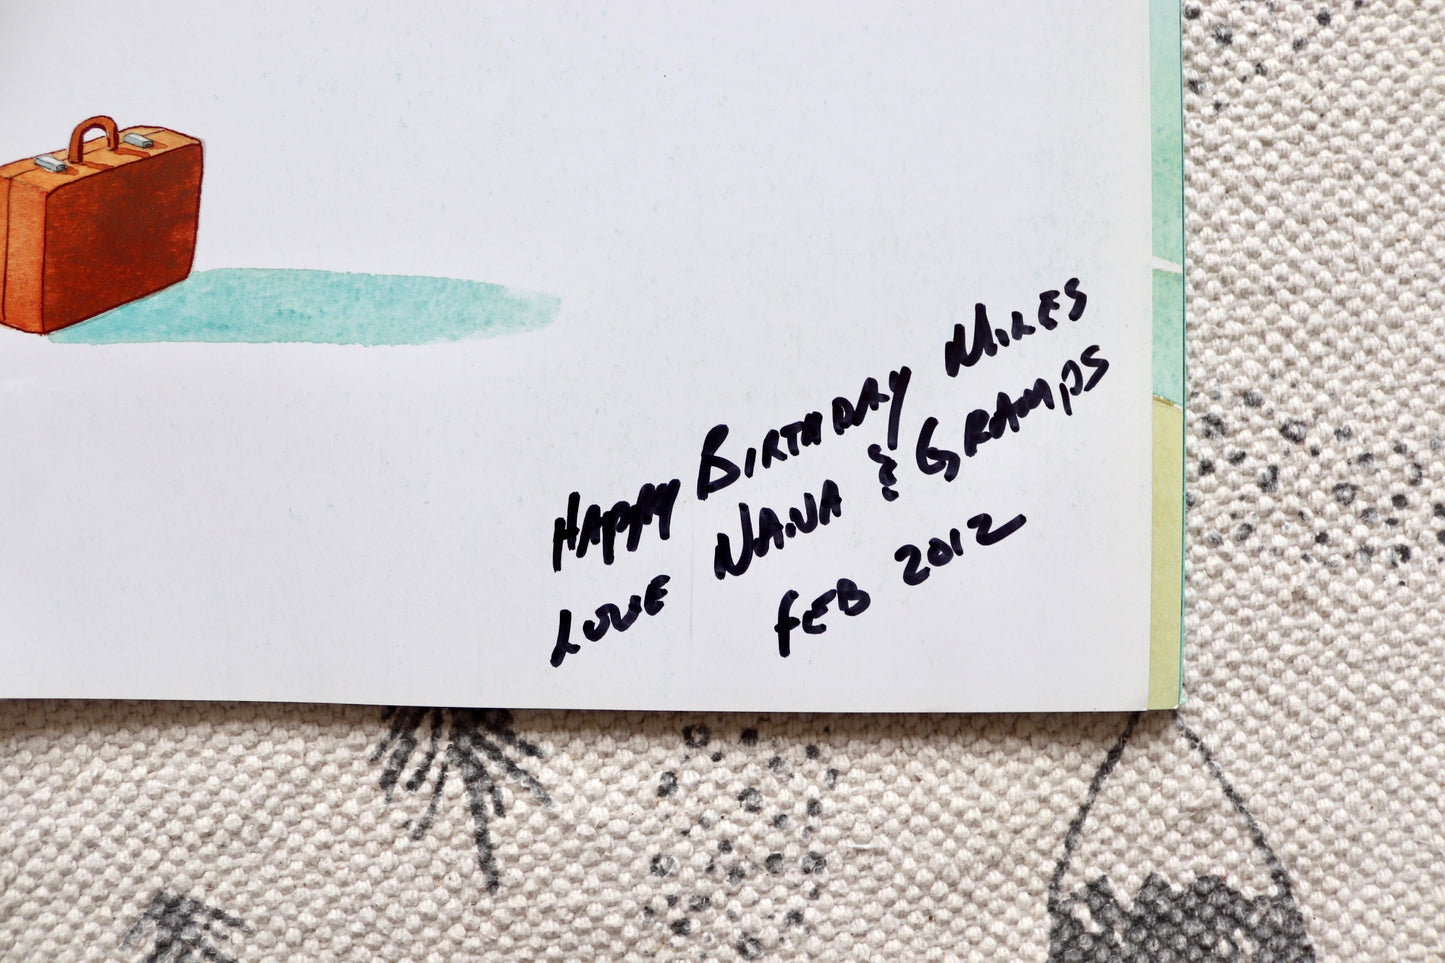 HAPPY BIRTHDAY MILES
LOVE NANA & GRAMPS
FEB 2012